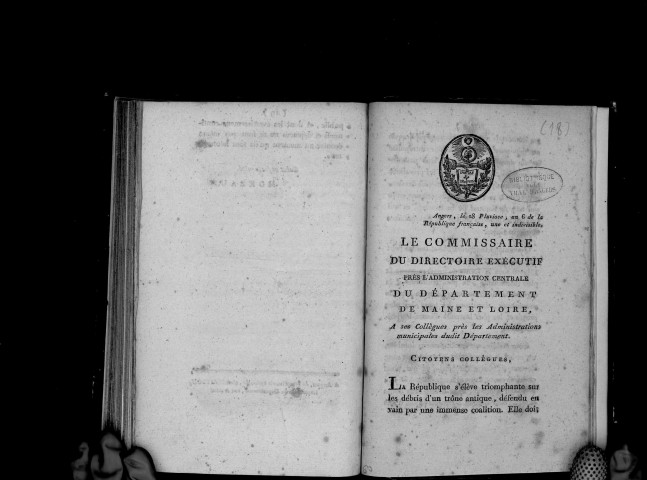 (18)
BIBLIOTHEQUE
Angers, le 28 Pluviose, an 6 de la
République française, une et indivisible.
LE COMMISSAIRE
DU DIRECTOIRE EXÉCUTIF
PRÈS L'ADMINISTRATION CENTRALE
DU DÉPARTEMENT
DE MAINE ET LOIRE,
A ses Collègues près les Administrations
municipales dudit Département.
CITOYENS COLLÈGUES,
LA République s'élève triomphante sur
les débris d'un trône antique, défendu en
vain par une immense coalition. Elle doit